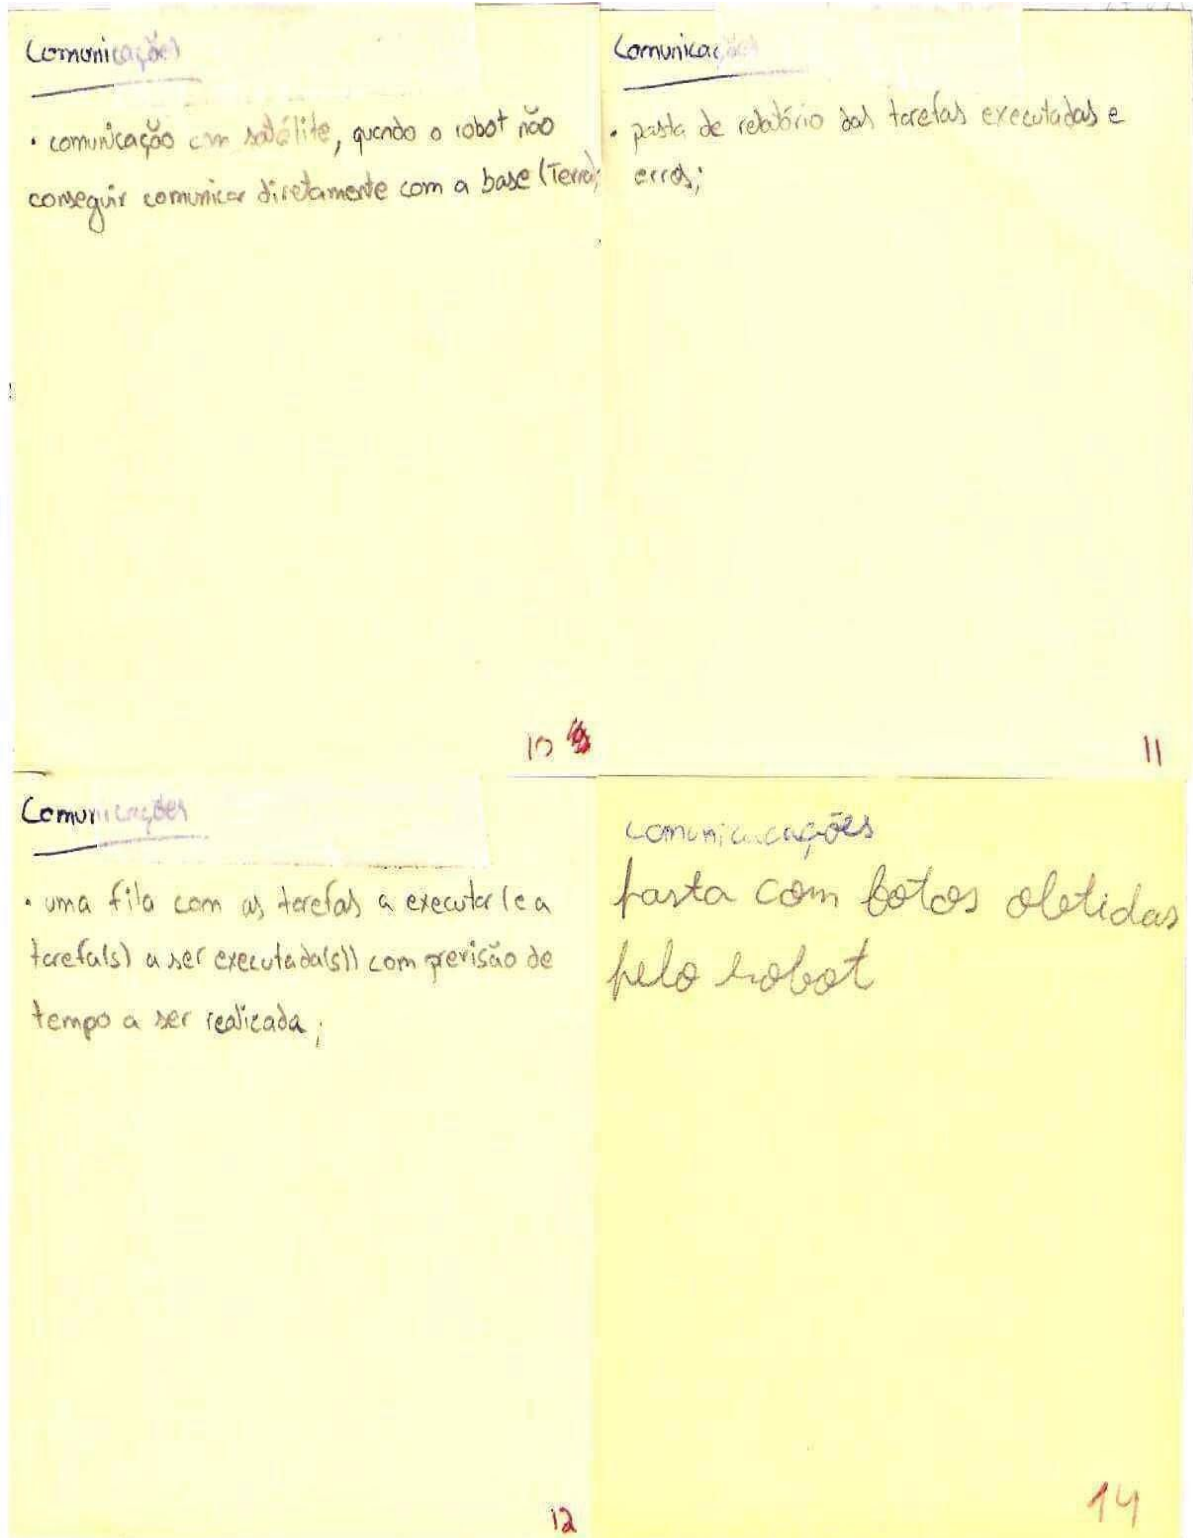 Comunicações
• comunicação com satélite, quando o robot não
conseguir comunicar diretamente com a base (Terra);
10
Comunicações
• pasta de relatório das tarefas executadas e
erros;
11
Comunicações
• uma fila com as tarefas a executar (e a
tarefa(s) a ser executada(s)) com previsão de
tempo a ser realizada;
12
comunicacações
pasta com fotos obtidas
pelo robot
14